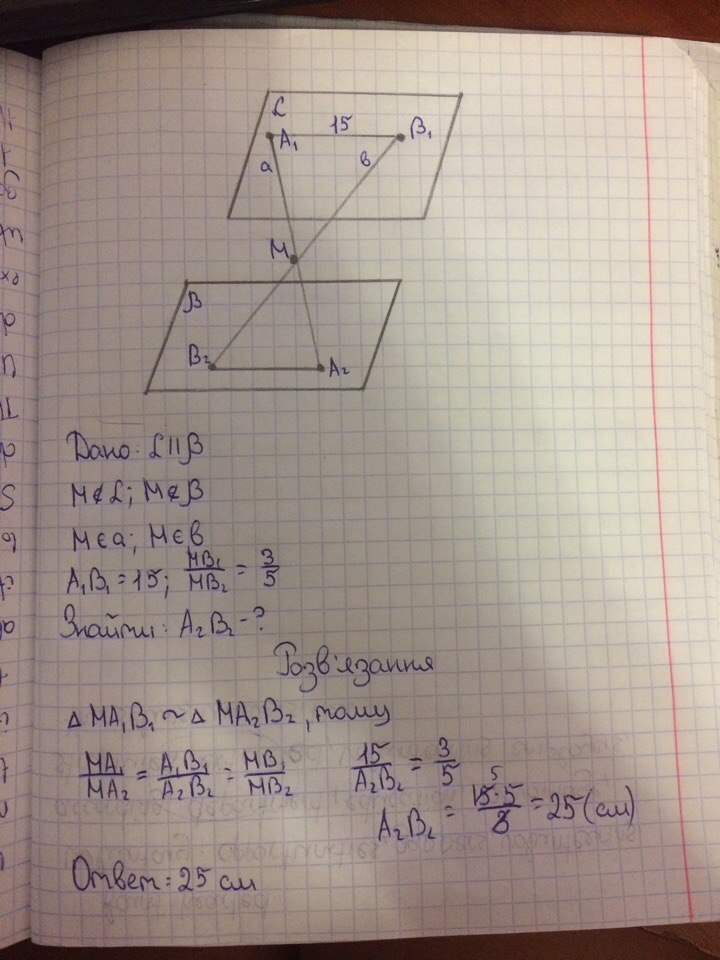 α
15
A₁
B₁
a
b
M
β
B₂
A₂
Дано: α || β
M ∉ α; M ∉ β
M ∈ a; M ∈ b
A₁B₁ = 15; MB₁/MB₂ = 3/5
Знайти: A₂B₂ - ?
Розв'язання
Δ MA₁B₁ ~ Δ MA₂B₂, тому
MA₁/MA₂ = A₁B₁/A₂B₂ = MB₁/MB₂ 15/A₂B₂ = 3/5
5
A₂B₂ = 15·5/3 = 25 (см)
Ответ: 25 см